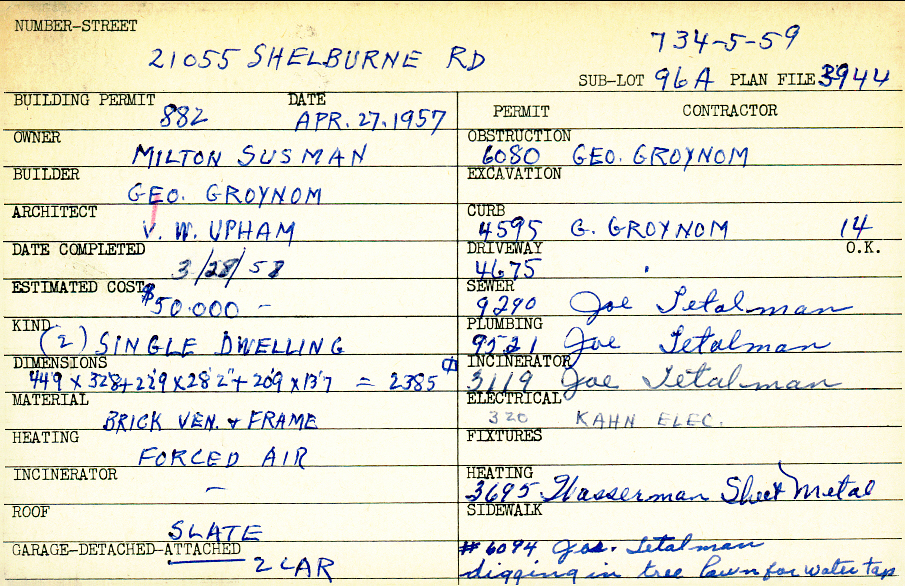 NUMBER-STREET
21055 SHELBURNE RD
734-5-59
SUB-LOT 96A PLAN FILE 3944
BUILDING PERMIT DATE
882 APR. 27. 1957
OWNER
MILTON SUSMAN
BUILDER
GEO. GROYNOM
ARCHITECT
V. W. UPHAM
DATE COMPLETED
3/28/58
ESTIMATED COST
$50.000 -
KIND
(2) SINGLE DWELLING
DIMENSIONS
44'9 x 32'8 + 22'9 x 28'2" + 20'9 x 13'7 = 2385
MATERIAL
BRICK VEN. & FRAME
HEATING
FORCED AIR
INCINERATOR
-
ROOF
SLATE
GARAGE-DETACHED-ATTACHED
2 CAR
PERMIT CONTRACTOR
OBSTRUCTION
6080 GEO. GROYNOM
EXCAVATION
CURB
4595 G. GROYNOM 14
DRIVEWAY O.K.
4675
SEWER
9290 Joe Tetalman
PLUMBING
9521 Joe Tetalman
INCINERATOR
3119 Joe Tetalman
ELECTRICAL
320 KAHN ELEC.
FIXTURES
HEATING
3695 Wasserman Sheet Metal
SIDEWALK
#6094 Jos. Tetalman
digging in tree lawn for water tap